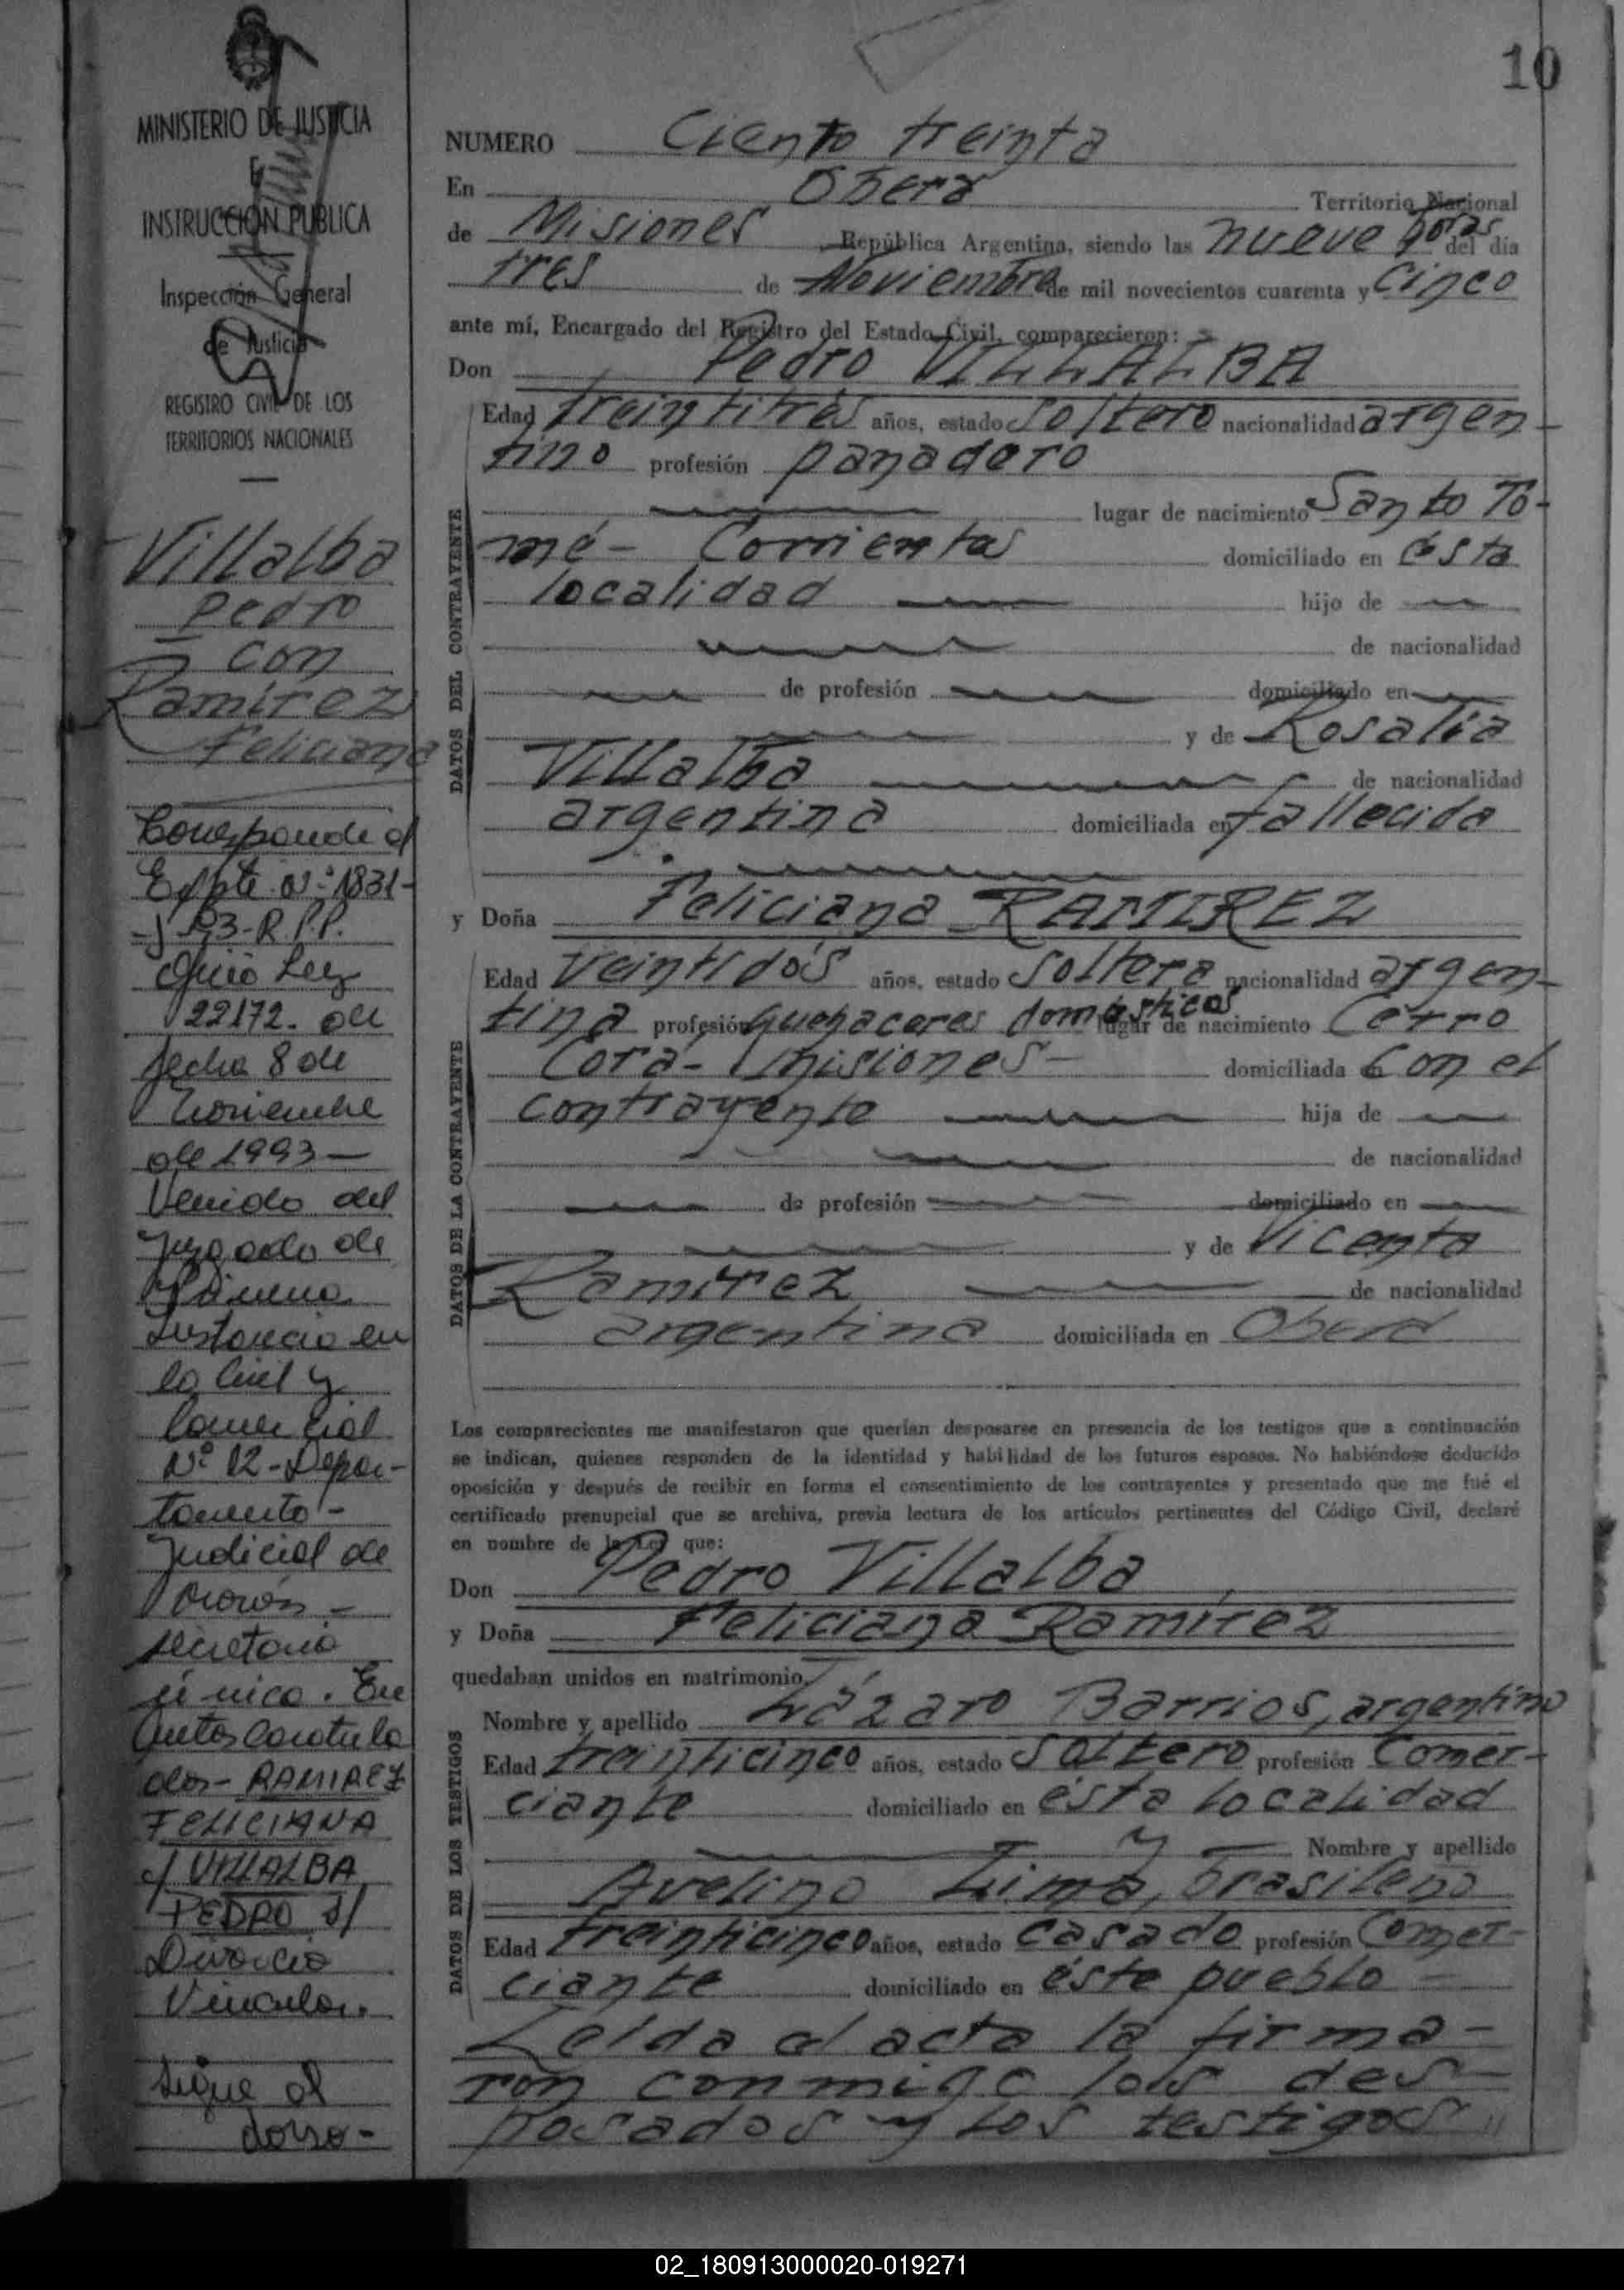 10
MINISTERIO DE JUSTICIA
E
INSTRUCCION PUBLICA
Inspección General
de Justicia
REGISTRO CIVIL DE LOS
TERRITORIOS NACIONALES
Villalba
Pedro
con
Ramirez
Feliciana
Corresponde al
Expte. Nº 1831-
R.P.P.
Oficio Ley
22172. de
fecha 8 de
Noviembre
de 1993 —
Venido del
Juzgado de
Primera
Instancia en
lo Civil y
Comercial
Nº 12 - Depar-
tamento -
Judicial de
Morón -
secretaria
única. En
autos caratula
dos - RAMIREZ
FELICIANA
c/ VILLALBA
PEDRO s/
Divorcio
Vincular.
Sigue al
dorso -
NUMERO Ciento treinta
En Oberá Territorio Nacional
de Misiones República Argentina, siendo las nueve horas del día
tres de Noviembre de mil novecientos cuarenta y cinco
ante mí, Encargado del Registro del Estado Civil, comparecieron:
Don Pedro VILLALBA
DATOS DEL CONTRAYENTE
Edad treintitrés años, estado soltero nacionalidad argen-
tino profesión panadero
lugar de nacimiento Santo To-
mé - Corrientes domiciliado en esta
localidad hijo de
de nacionalidad
de profesión domiciliado en
y de Rosalía
Villalba de nacionalidad
argentina domiciliada en fallecida
y Doña Feliciana RAMIREZ
DATOS DE LA CONTRAYENTE
Edad veintidós años, estado soltera nacionalidad argen-
tina profesión quehaceres domésticos lugar de nacimiento Cerro
Corá - Misiones - domiciliada con el
contrayente hija de
de nacionalidad
de profesión domiciliado en
y de Vicenta
Ramírez de nacionalidad
argentina domiciliada en Oberá
Los comparecientes me manifestaron que querían desposarse en presencia de los testigos que a continuación
se indican, quienes responden de la identidad y habilidad de los futuros esposos. No habiéndose deducido
oposición y después de recibir en forma el consentimiento de los contrayentes y presentado que me fué el
certificado prenupcial que se archiva, previa lectura de los artículos pertinentes del Código Civil, declaré
en nombre de la Ley que:
Don Pedro Villalba
y Doña Feliciana Ramírez
quedaban unidos en matrimonio.
DATOS DE LOS TESTIGOS
Nombre y apellido Lázaro Barrios, argentino
Edad treinticinco años, estado soltero profesión Comer-
ciante domiciliado en ésta localidad
y Nombre y apellido
Avelino Lima, brasileno
Edad treinticinco años, estado casado profesión Comer-
ciante domiciliado en éste pueblo -
Leída el acta la firma-
ron conmigo los des-
posados y los testigos "
02_180913000020-019271